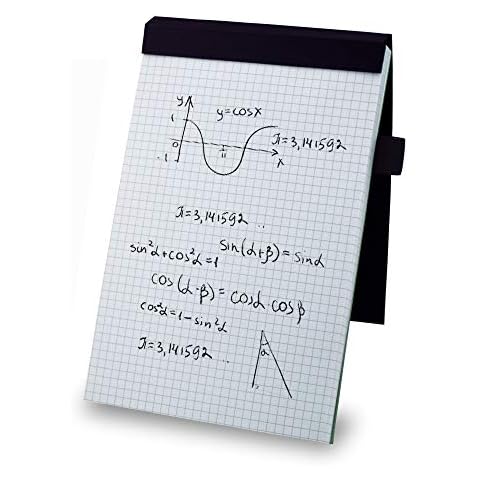 y
y=cosx
1
π=3,141592
0
π
x
-1
π=3,141592 ..
sin²α+cos²α=1
sin(α+β)=sinα
cos(α-β)=cosα·cosβ
cos²α=1-sin²α
α
π=3,141592 ...